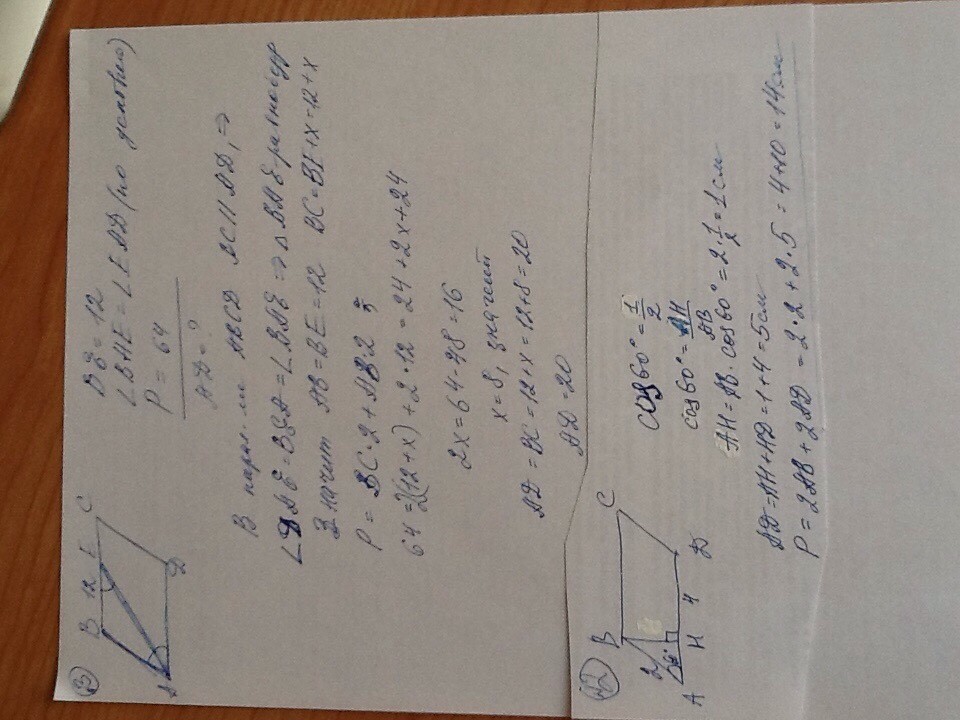 3
B 12 E C
A D
BE = 12
∠BAE = ∠EAD (по условию)
P = 64
AD = ?
В парал-ме ABCD BC || AD, ⇒
∠DAE = BEA = ∠BAE ⇒ Δ BAE равнобедр
Значит AB = BE = 12 BC = BE + x = 12 + x
P = BC·2 + AB·2
64 = 2(12 + x) + 2·12 = 24 + 2x + 24
2x = 64 - 48 = 16
x = 8, значит
AD = BC = 12 + x = 12 + 8 = 20
AD = 20
B C
2
60°
A H 4 D
cos 60° = 1/2
cos 60° = AH/AB
AH = AB · cos 60° = 2 · 1/2 = 1 см
AD = AH + HD = 1 + 4 = 5 см
P = 2AB + 2AD = 2·2 + 2·5 = 4 + 10 = 14 см